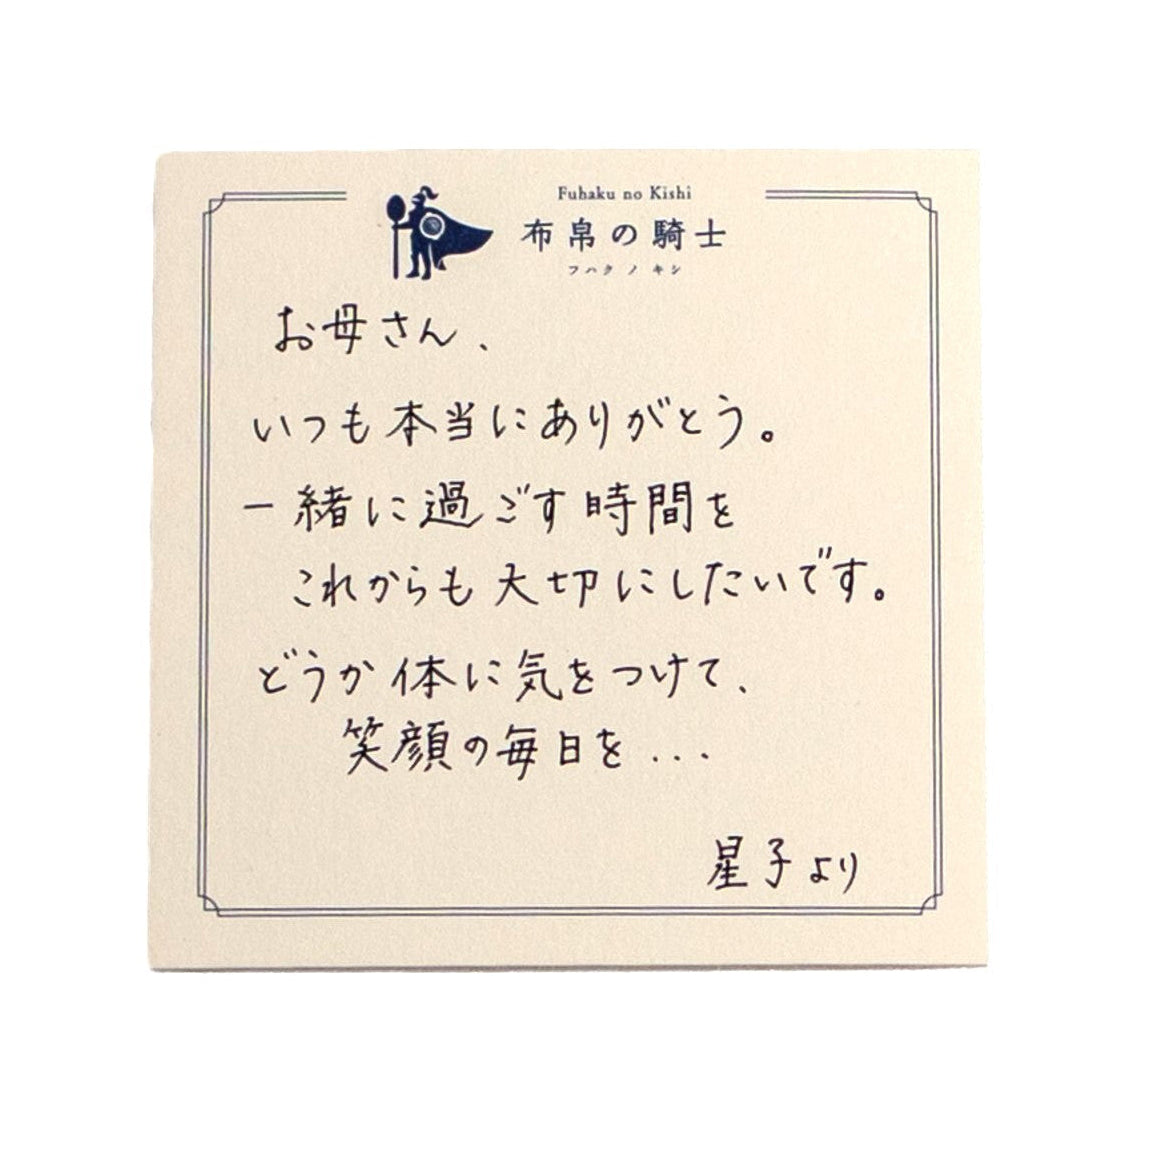 Fuhaku no Kishi
布帛の騎士
フハク ノ キシ
お母さん、
いつも本当にありがとう。
一緒に過ごす時間を
これからも大切にしたいです。
どうか体に気をつけて、
笑顔の毎日を...
星子より